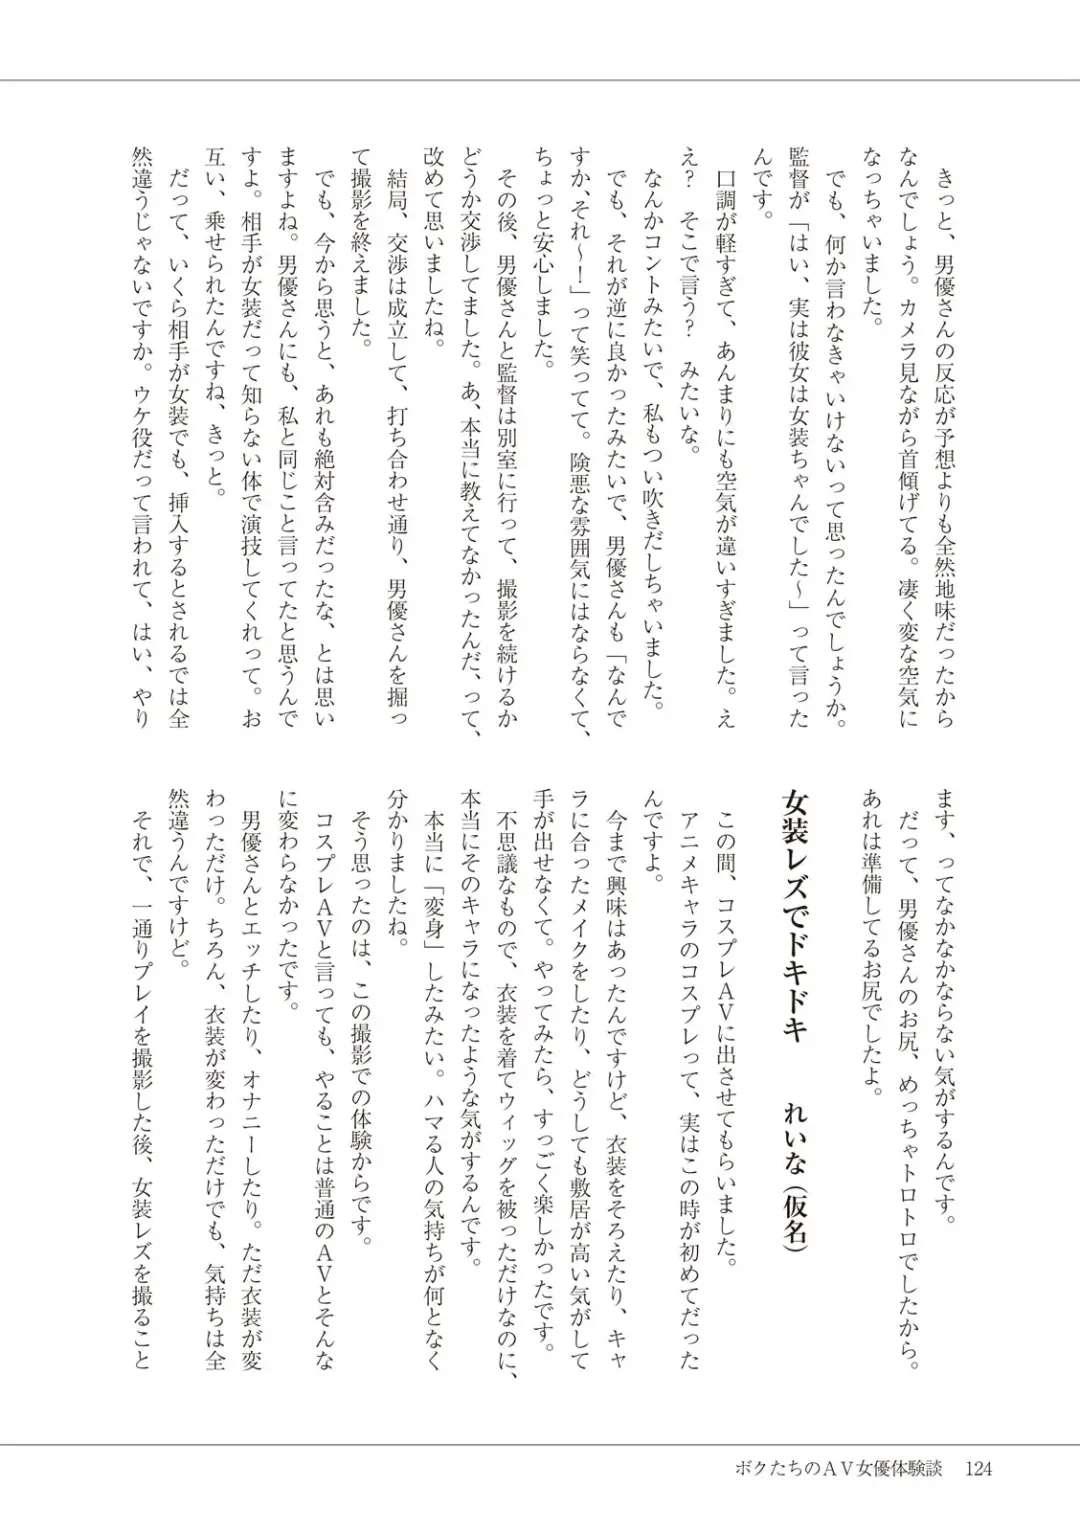 きっと、男優さんの反応が予想よりも全然地味だったから
なんでしょう。カメラ見ながら首傾げてる。凄く変な空気に
なっちゃいました。
でも、何か言わなきゃいけないって思ったんでしょうか。
監督が「はい、実は彼女は女装ちゃんでした～」って言った
んです。
口調が軽すぎて、あんまりにも空気が違いすぎました。え
え？　そこで言う？　みたいな。
なんかコントみたいで、私もつい吹きだしちゃいました。
でも、それが逆に良かったみたいで、男優さんも「なんで
すか、それ～！」って笑ってて。険悪な雰囲気にはならなくて、
ちょっと安心しました。
その後、男優さんと監督は別室に行って、撮影を続けるか
どうか交渉してました。あ、本当に教えてなかったんだ、って、
改めて思いましたね。
結局、交渉は成立して、打ち合わせ通り、男優さんを掘っ
て撮影を終えました。
でも、今から思うと、あれも絶対含みだったな、とは思い
ますよね。男優さんにも、私と同じこと言ってたと思うんで
すよ。相手が女装だって知らない体で演技してくれって。お
互い、乗せられたんですね、きっと。
だって、いくら相手が女装でも、挿入するとされるでは全
然違うじゃないですか。ウケ役だって言われて、はい、やり
ます、ってなかなかならない気がするんです。
だって、男優さんのお尻、めっちゃトロトロでしたから。
あれは準備してるお尻でしたよ。
女装レズでドキドキ　　れいな（仮名）
この間、コスプレＡＶに出させてもらいました。
アニメキャラのコスプレって、実はこの時が初めてだった
んですよ。
今まで興味はあったんですけど、衣装をそろえたり、キャ
ラに合ったメイクをしたり、どうしても敷居が高い気がして
手が出せなくて。やってみたら、すっごく楽しかったです。
不思議なもので、衣装を着てウィッグを被っただけなのに、
本当にそのキャラになったような気がするんです。
本当に「変身」したみたい。ハマる人の気持ちが何となく
分かりましたね。
そう思ったのは、この撮影での体験からです。
コスプレＡＶと言っても、やることは普通のＡＶとそんな
に変わらなかったです。
男優さんとエッチしたり、オナニーしたり。ただ衣装が変
わっただけ。ちろん、衣装が変わっただけでも、気持ちは全
然違うんですけど。
それで、一通りプレイを撮影した後、女装レズを撮ること
ボクたちのＡＶ女優体験談　124